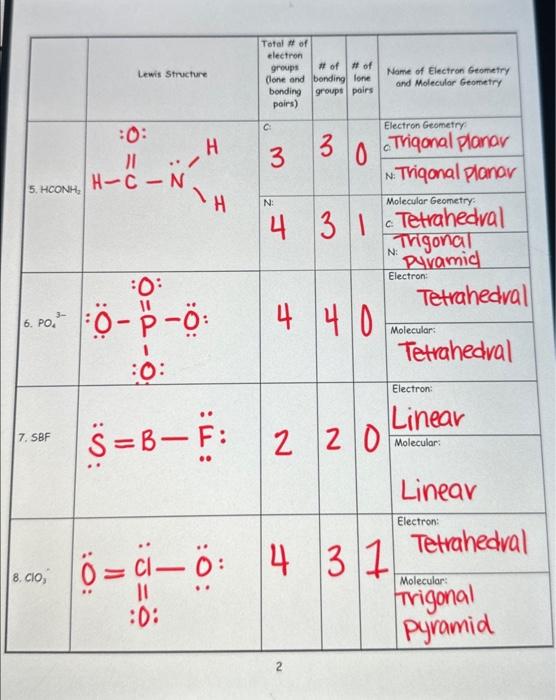 Lewis Structure
Total # of
electron
groups
(lone and
bonding
pairs)
# of
bonding
groups
# of
lone
pairs
Name of Electron Geometry
and Molecular Geometry
5. HCONH₂
:O:
H
H-C-N
H
C:
3
3
0
N:
4
3
1
Electron Geometry:
C: Trigonal planar
N: Trigonal planar
Molecular Geometry:
C: Tetrahedral
N: Trigonal
pyramid
6. PO₄³⁻
:O:
:O-P-O:
:O:
4
4
0
Electron:
Tetrahedral
Molecular:
Tetrahedral
7. SBF
S=B-F:
2
2
0
Electron:
Linear
Molecular:
Linear
8. ClO₃⁻
O=Cl-O:
:O:
4
3
1
Electron:
Tetrahedral
Molecular:
Trigonal
pyramid
2